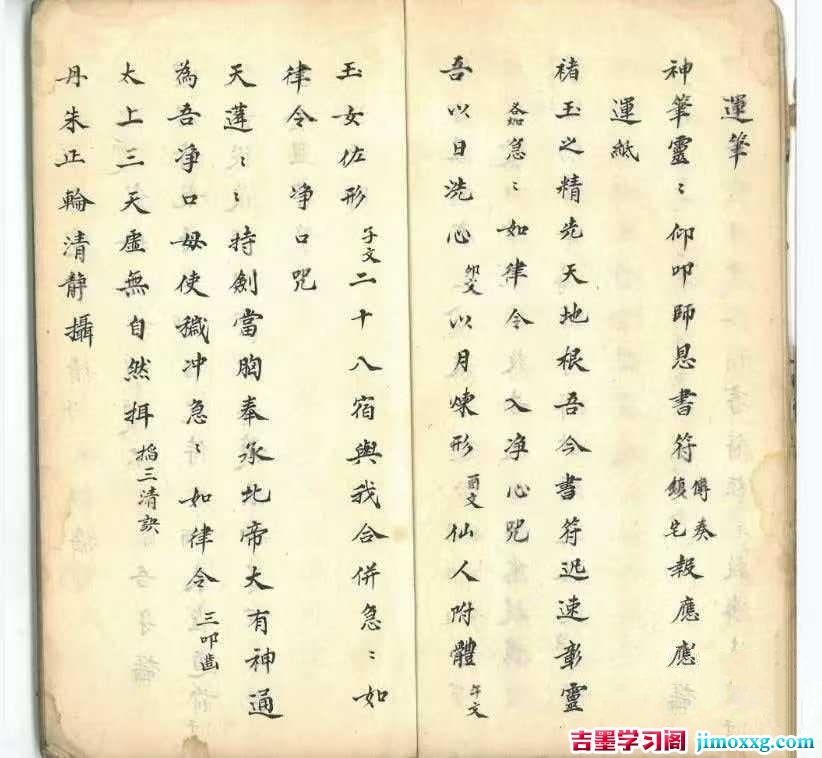 運筆
神筆靈〻仰叩師恩書符傳奏鎮宅報應應
運紙
楮玉之精先天地根吾今書符迅速彰靈
各如急〻如律令 入净心咒
吾以日洗心卯文以月煉形酉文仙人附體午文
玉女佐形子文二十八宿與我合併急〻如
律令 净口咒
天蓬〻〻持劍當胸奉承北帝大有神通
為吾净口毋使穢冲急〻如律令三叩齒
太上三天虛無自然掐三清訣
丹朱正輪清靜攝
吉墨学习阁 jimoxxg.com